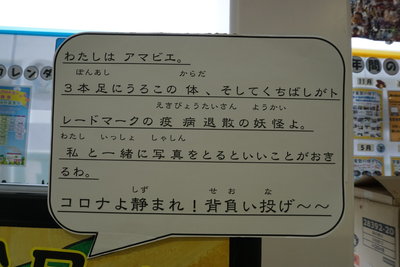 わたしは アマビエ。
ぽんあし からだ
３本足にうろこの 体、そしてくちばしがト
えきびょうたいさん ようかい
レードマークの 疫 病 退 散 の 妖怪よ。
わたし いっしょ しゃしん
私 と一緒に写真をとるといいことがおき
るわ。
しず せ お な
コロナよ静まれ！背負い投げ～～
カレンダ
年間の
11月
5月